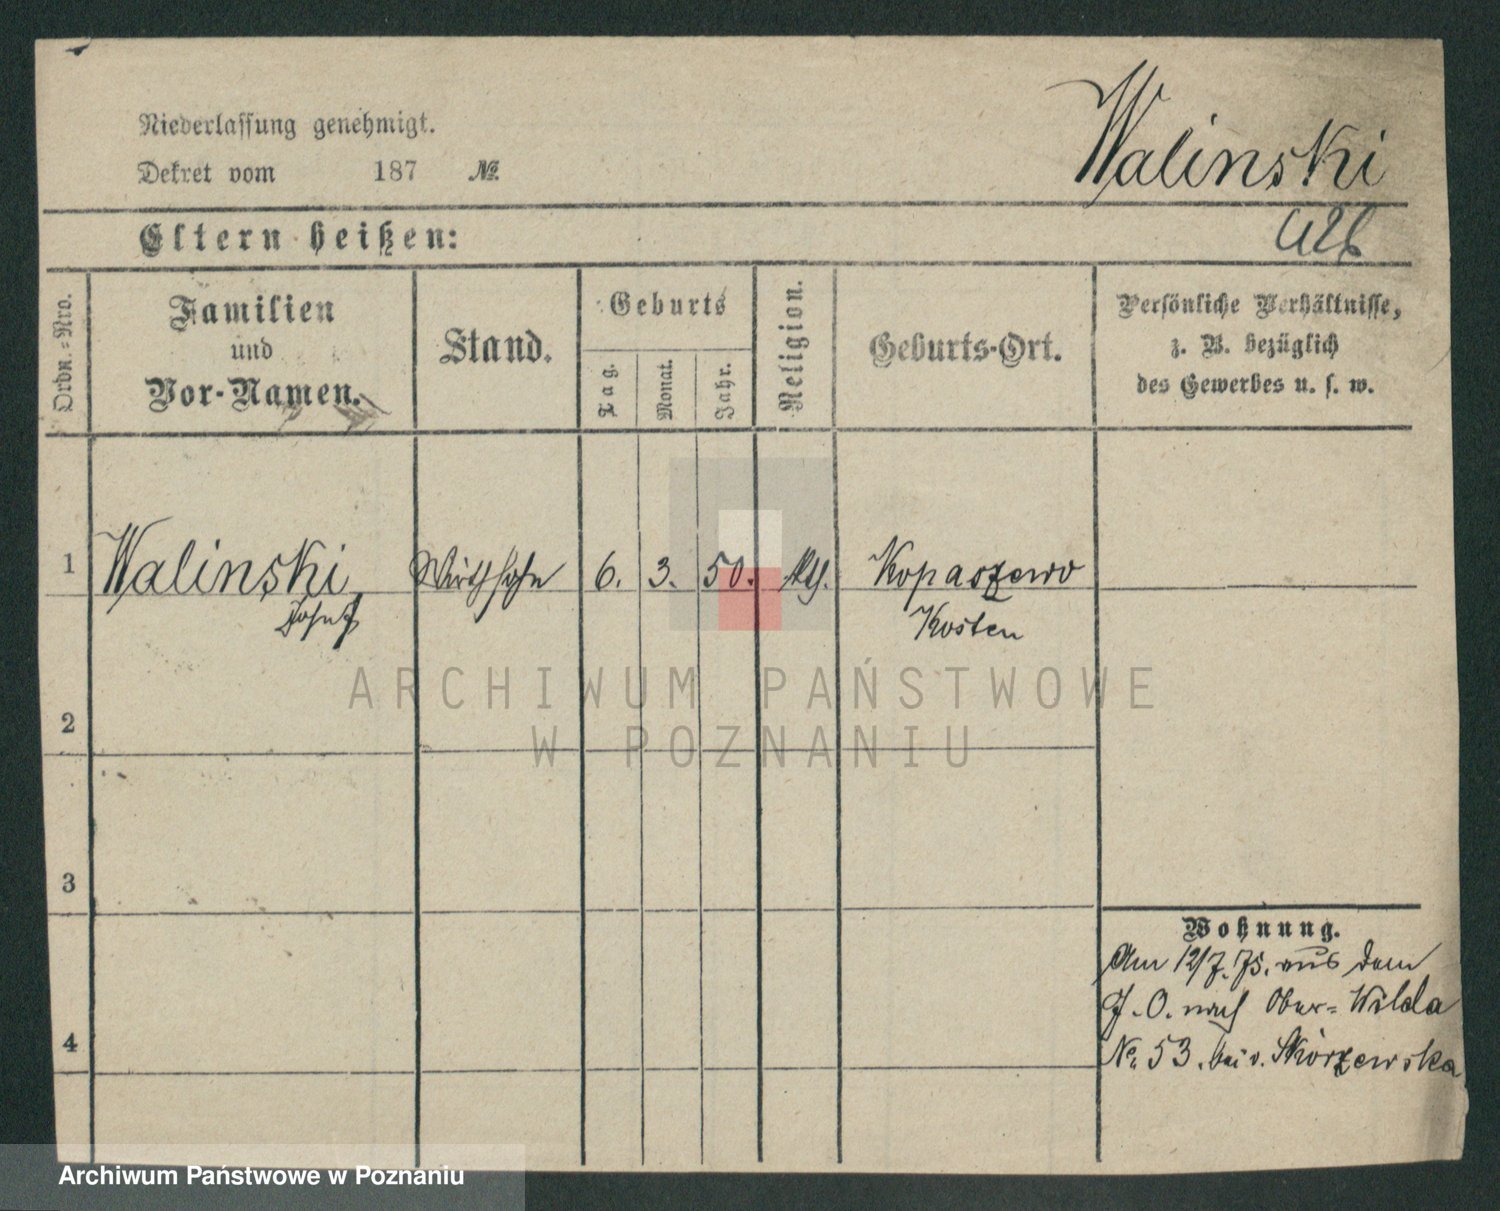 Walinski
Niederlassung genehmigt.
Dekret vom 187 №
Eltern heißen:
Ordn.-Nro.
Familien
und
Vor-Namen.
Stand.
Geburts
Tag.
Monat.
Jahr.
Religion.
Geburts-Ort.
Persönliche Verhältnisse,
z. B. bezüglich
des Gewerbes u. s. w.
1 Walinski, Wirthsohn 6. 3. 50. kth. Kopaszewo
Josef Kosten
2
3
4
Wohnung.
Am 12/7. 75. aus dem
J. O. nach Ober-Wilda
No 53. bei v. Skórzewska
ARCHIWUM PAŃSTWOWE
W POZNANIU
Archiwum Państwowe w Poznaniu